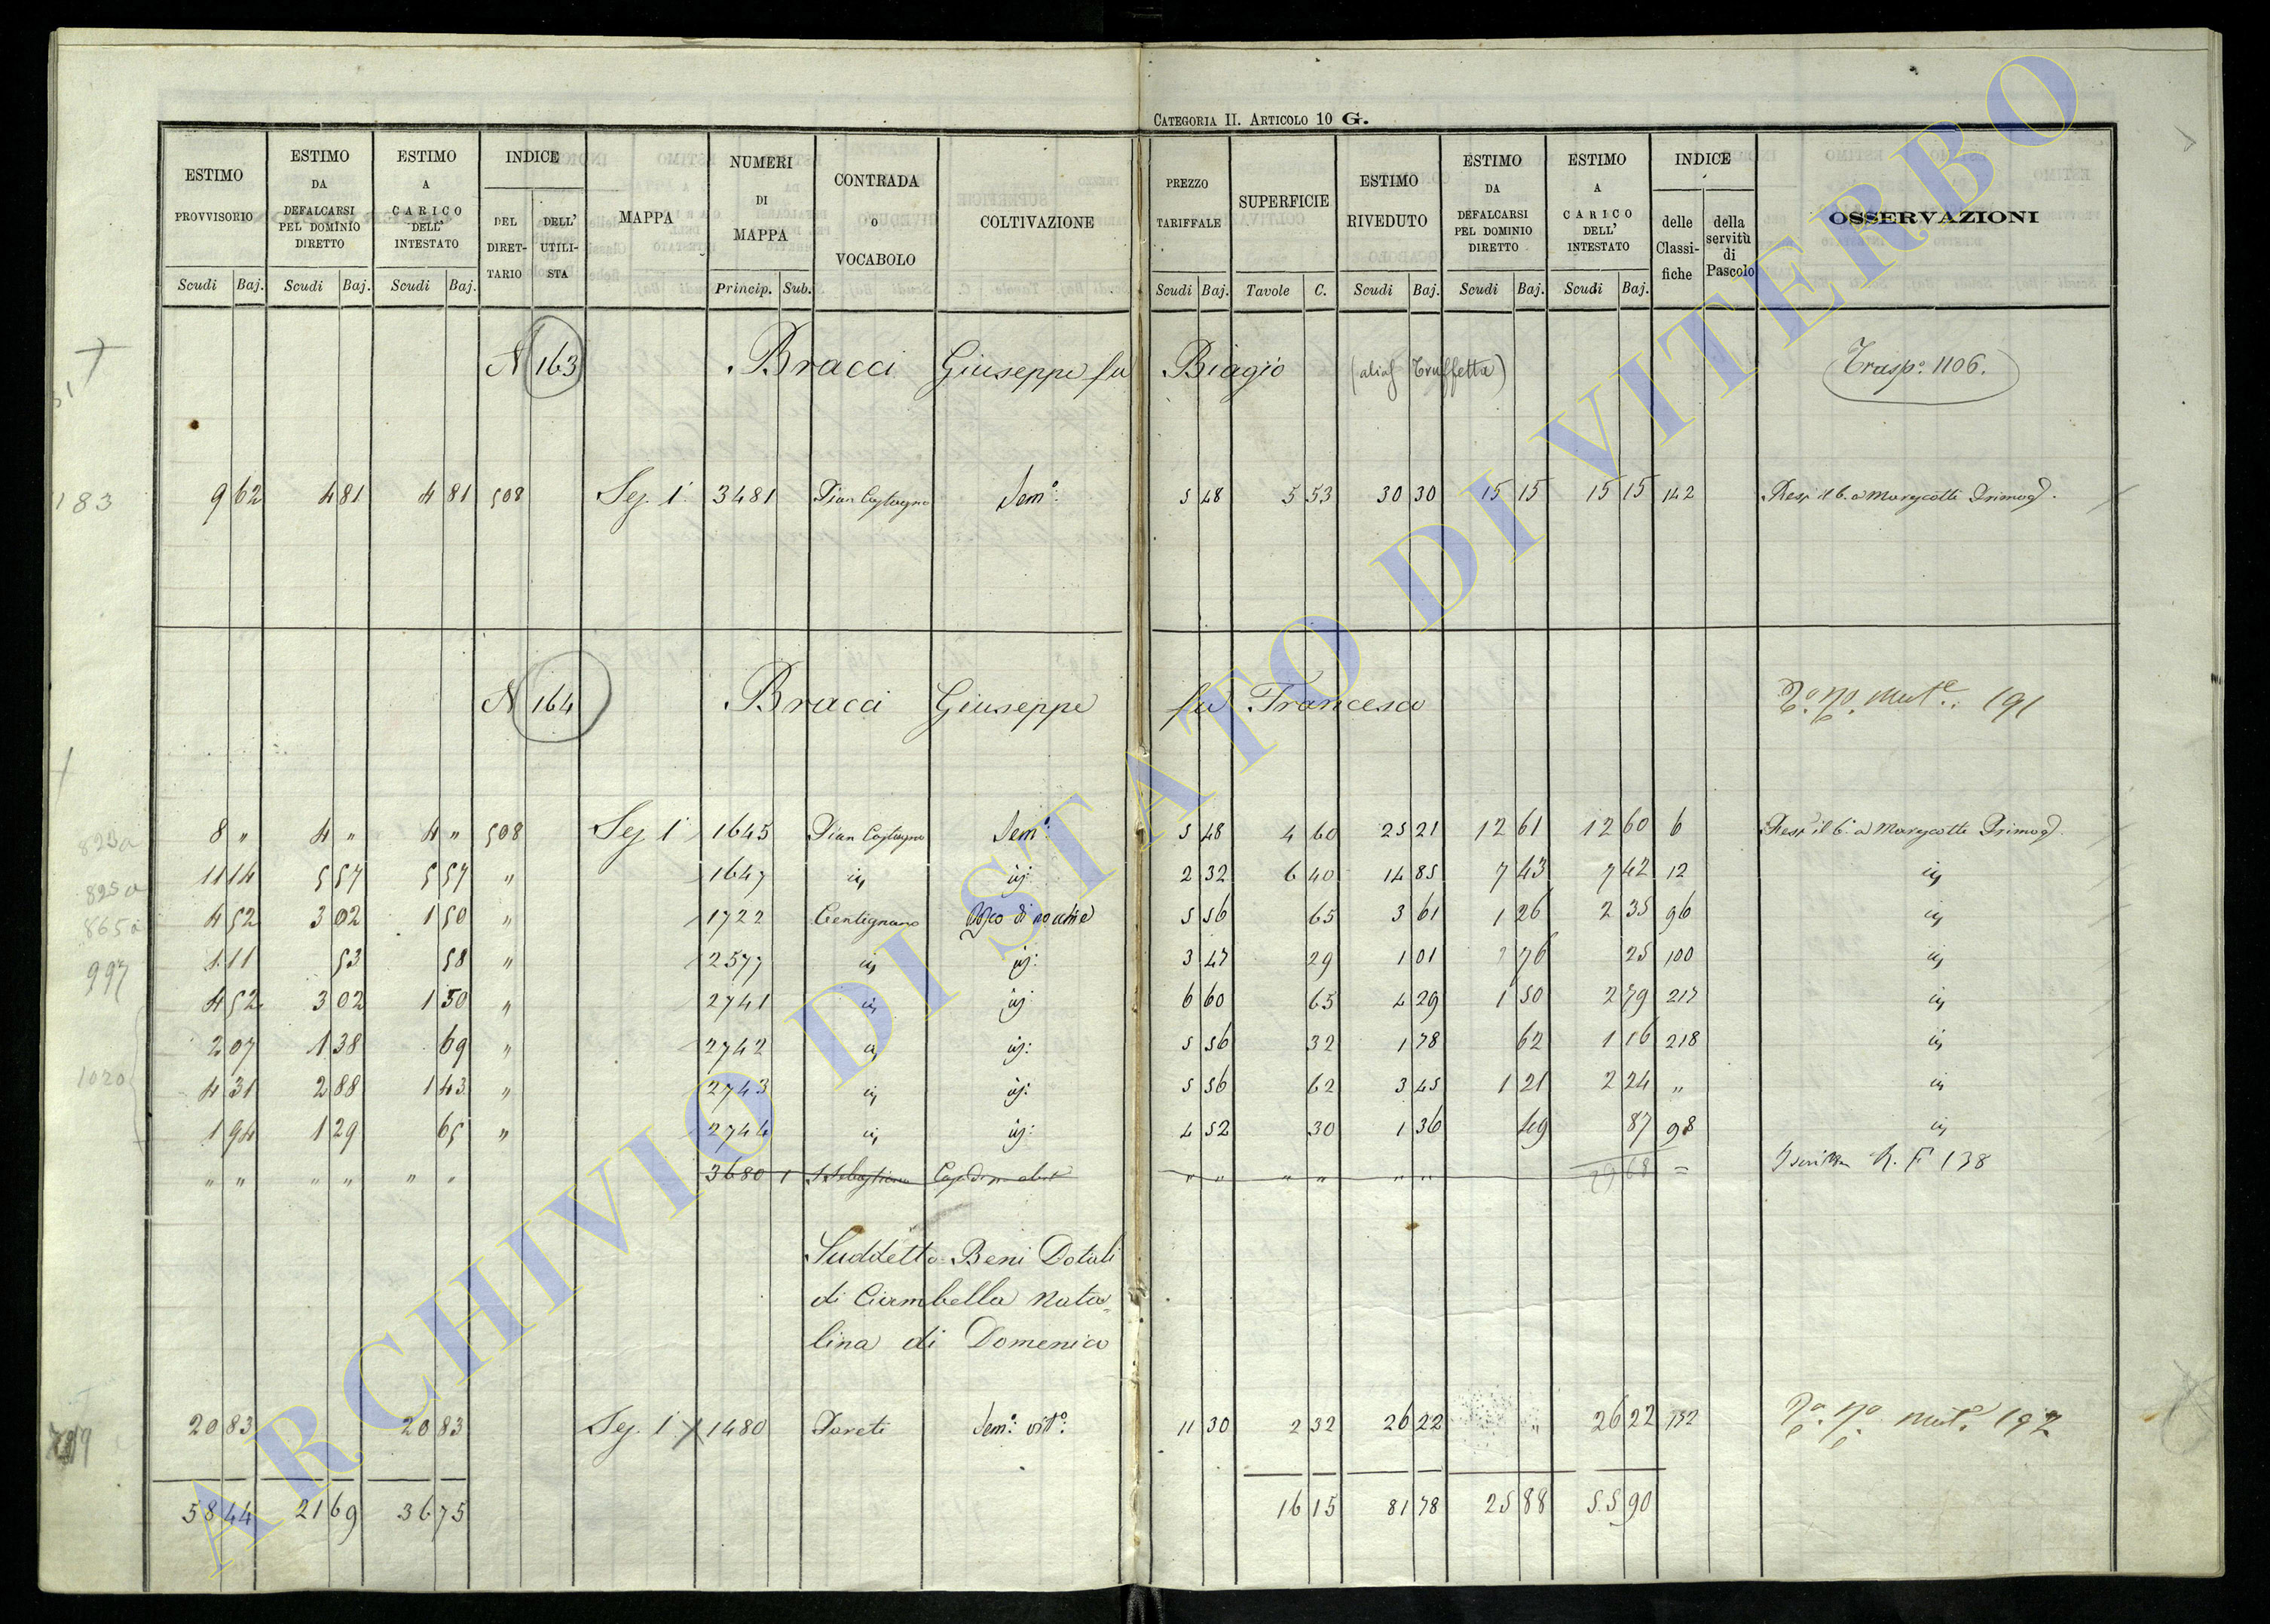 CATEGORIA II. ARTICOLO 10 G.
ESTIMO PROVVISORIO Scudi Baj. ESTIMO DA DEFALCARSI PEL DOMINIO DIRETTO Scudi Baj. ESTIMO A CARICO DELL' INTESTATO Scudi Baj. INDICE DEL DIRET- TARIO DELL' UTILI- STA MAPPA NUMERI DI MAPPA Princip. Sub. CONTRADA o VOCABOLO COLTIVAZIONE PREZZO TARIFFALE Scudi Baj. SUPERFICIE Tavole C. ESTIMO RIVEDUTO Scudi Baj. ESTIMO DA DEFALCARSI PEL DOMINIO DIRETTO Scudi Baj. ESTIMO A CARICO DELL' INTESTATO Scudi Baj. INDICE delle Classi- fiche della servitù di Pascolo OSSERVAZIONI
N 163 Bracci Giuseppe fu Biagio (alias Truffetta) Trasp.o 1106.
183 9 62 4 81 4 81 508 Sez. 1 3481 Pian Castagno Sem.o 5 48 5 53 30 30 15 15 15 15 142
N 164 Bracci Giuseppe fu Francesco 191
823a 8 " 4 " 4 " 508 Sez 1 1645 Pian Castagno Sem.o 5 48 4 60 25 21 12 61 12 60 6
825a 11 14 5 57 5 57 " 1647 2 32 6 40 14 85 7 43 7 42 12
865a 4 52 3 02 1 50 " 1722 Centignano 5 56 65 3 61 1 26 2 35 96
997 1 11 53 58 " 2577 3 47 29 1 01 76 25 100
4 52 3 02 1 50 " 2741 6 60 65 4 29 1 50 2 79 217
2 07 1 38 69 " 2742 5 56 32 1 78 62 1 16 218
1020 4 31 2 88 1 43 " 2743 5 56 62 3 45 1 21 2 24 "
1 94 1 29 65 " 2744 4 52 30 1 36 49 87 98
" " " " " " 3680 1 " " " " " " 29 68 = R. F 138
Suddetto Beni Dotali
di Ciambella Nata=
lina di Domenico
20 83 20 83 Sez. 1 1480 Pareti Sem.o vit.o 11 30 2 32 26 22 " 26 22 132 192
58 44 21 69 36 75 16 15 81 78 25 88 55 90
ARCHIVIO DI STATO DI VITERBO